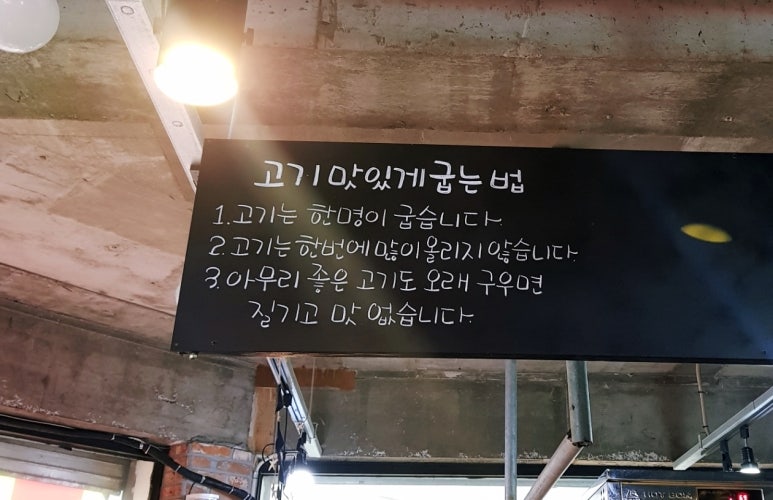 고기 맛있게 굽는 법
1. 고기는 한명이 굽습니다.
2. 고기는 한번에 많이 올리지 않습니다.
3. 아무리 좋은 고기도 오래 구우면
질기고 맛 없습니다.
HOT BOX